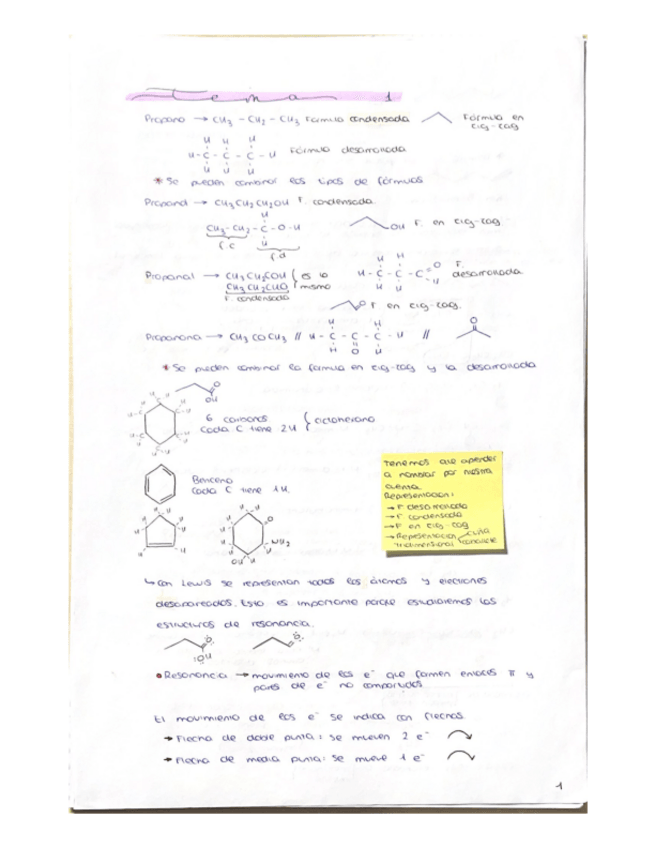 Tema 1
Propano → CH3 - CH2 - CH3 Formula condensada Fórmula en
cig-cag
H H H
H - C - C - C - H Fórmula desarrollada
H H H
* Se pueden combinar los tipos de fórmulas
Propanol → CH3CH2CH2OH F. condensada.
H
CH3-CH2-C-O-H OH F. en cig-cag
H
f.c f.d
Propanal → CH3CH2COH { es lo H H O F.
CH3CH2CHO mismo H - C - C - C desarrollada
F. condensada H H H
O F en cig-cag.
H H O
Propanona → CH3COCH3 // H - C - C - C - H //
H O H
* Se pueden combinar la formula en cig-cag y la desarrollada
O
OH
6 carbonos
Cada C tiene 2H { ciclohexano
Benceno
Cada C tiene 1H.
O
NH2
OH
Tenemos que aprender
a nombrar por nuestra
cuenta.
Representación:
→ F desarrollada
→ F condensada
→ F en cig-cag
→ Representación cuña
tridimensional
↳ Con Lewis se representan todos los átomos y electrones
desapareados. Esto es importante porque estudiaremos las
estructuras de resonancia.
O O
OH
• Resonancia → movimiento de los e- que formen enlaces π y
pares de e- no compartidos
El movimiento de los e- se indica con flechas
→ Flecha de doble punta: se mueven 2 e-
→ Flecha de media punta: se mueve 1 e-
1